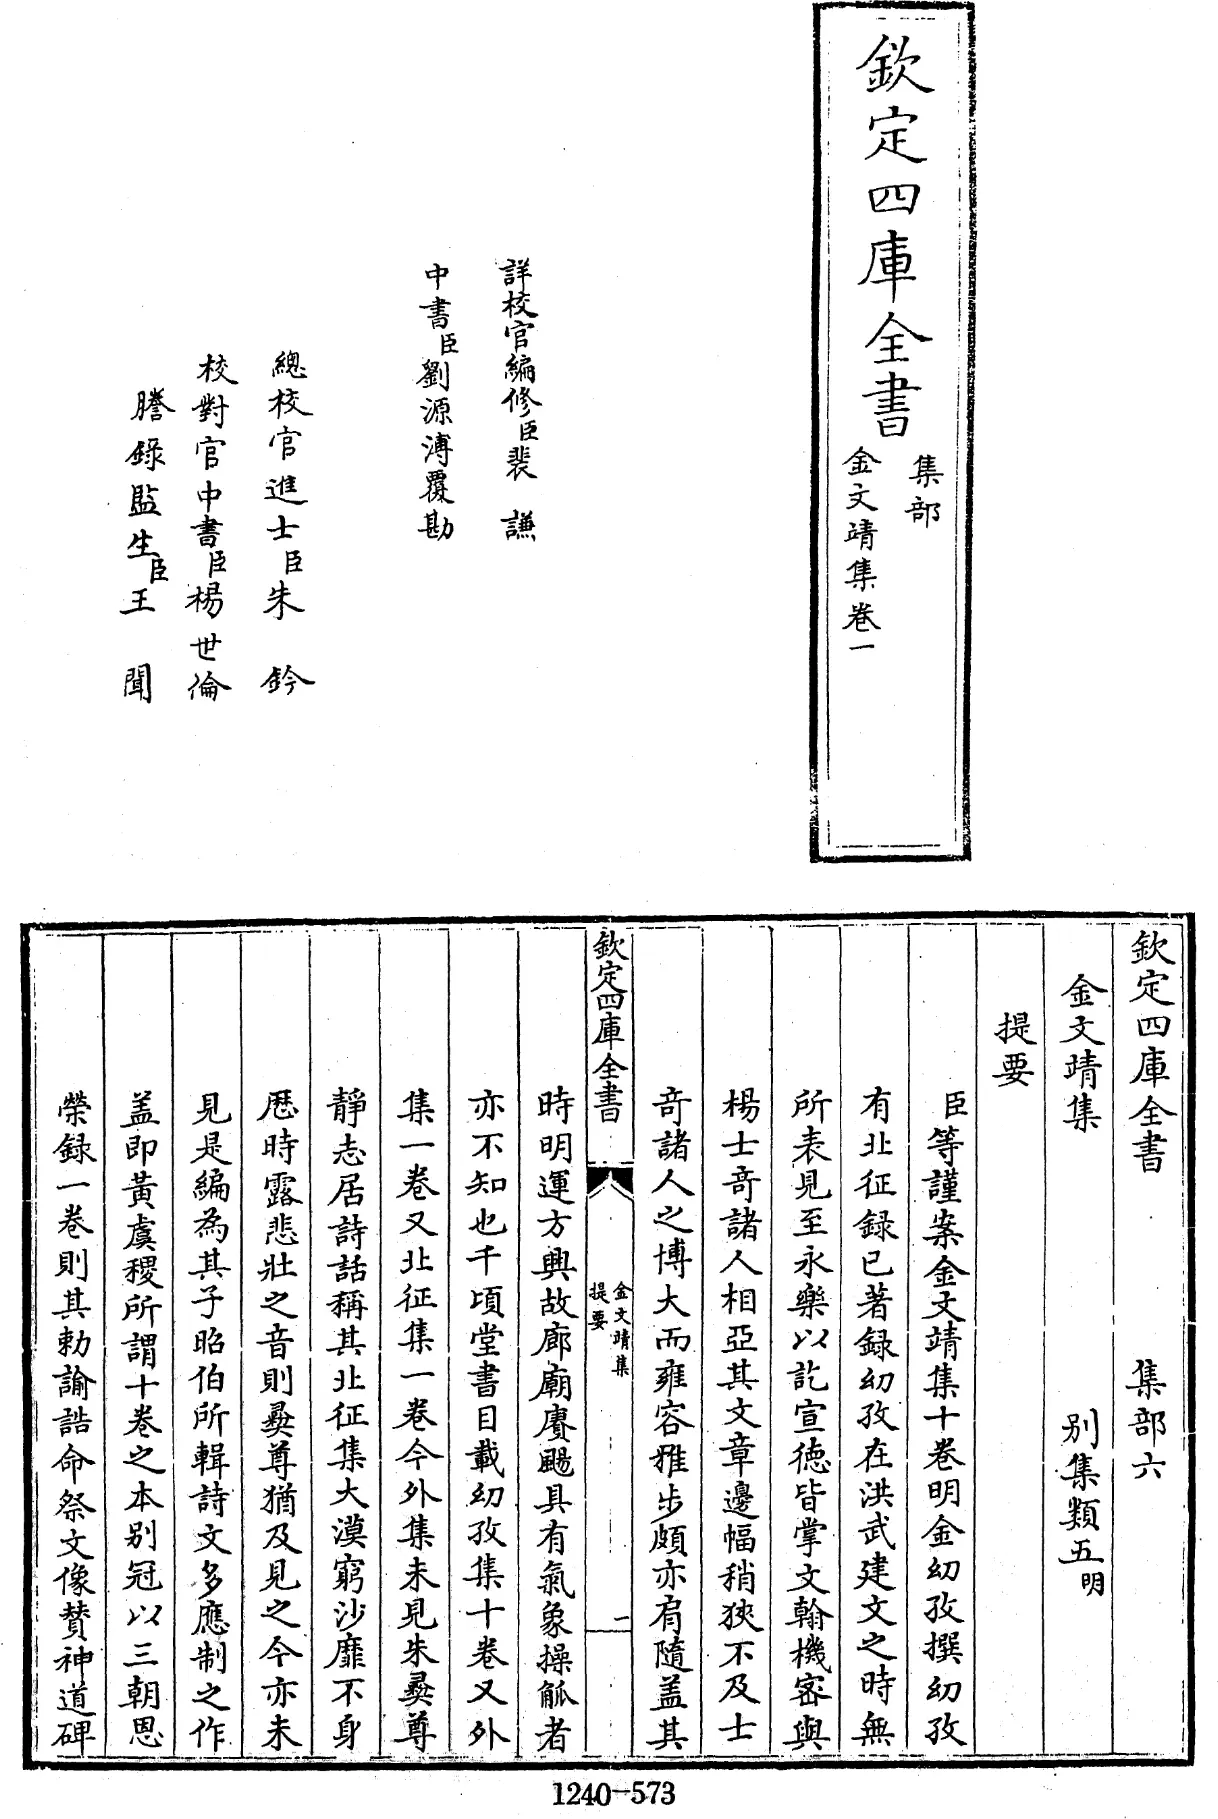 欽定四庫全書
集部
金文靖集卷一
詳校官編修臣裴謙
中書臣劉源溥覆勘
總校官進士臣朱鈐
校對官中書臣楊世倫
謄錄監生臣王聞
欽定四庫全書 集部六
金文靖集 別集類五明
提要
臣等謹案金文靖集十卷明金幼孜撰幼孜
有北征録已著録幼孜在洪武建文之時無
所表見至永樂以訖宣德皆掌文翰機密與
楊士竒諸人相亞其文章邊幅稍狹不及士
竒諸人之博大而雍容雅步頗亦肩隨盖其
欽定四庫全書
金文靖集
提要
一
時明運方興故廊廟賡颺具有氣象操觚者
亦不知也千頃堂書目載幼孜集十卷又外
集一卷又北征集一卷今外集未見朱彝尊
靜志居詩話稱其北征集大漠窮沙靡不身
厯時露悲壯之音則彝尊猶及見之今亦未
見是編為其子昭伯所輯詩文多應制之作
盖即黃虞稷所謂十卷之本别冠以三朝恩
榮録一卷則其勅諭誥命祭文像賛神道碑
1240-573